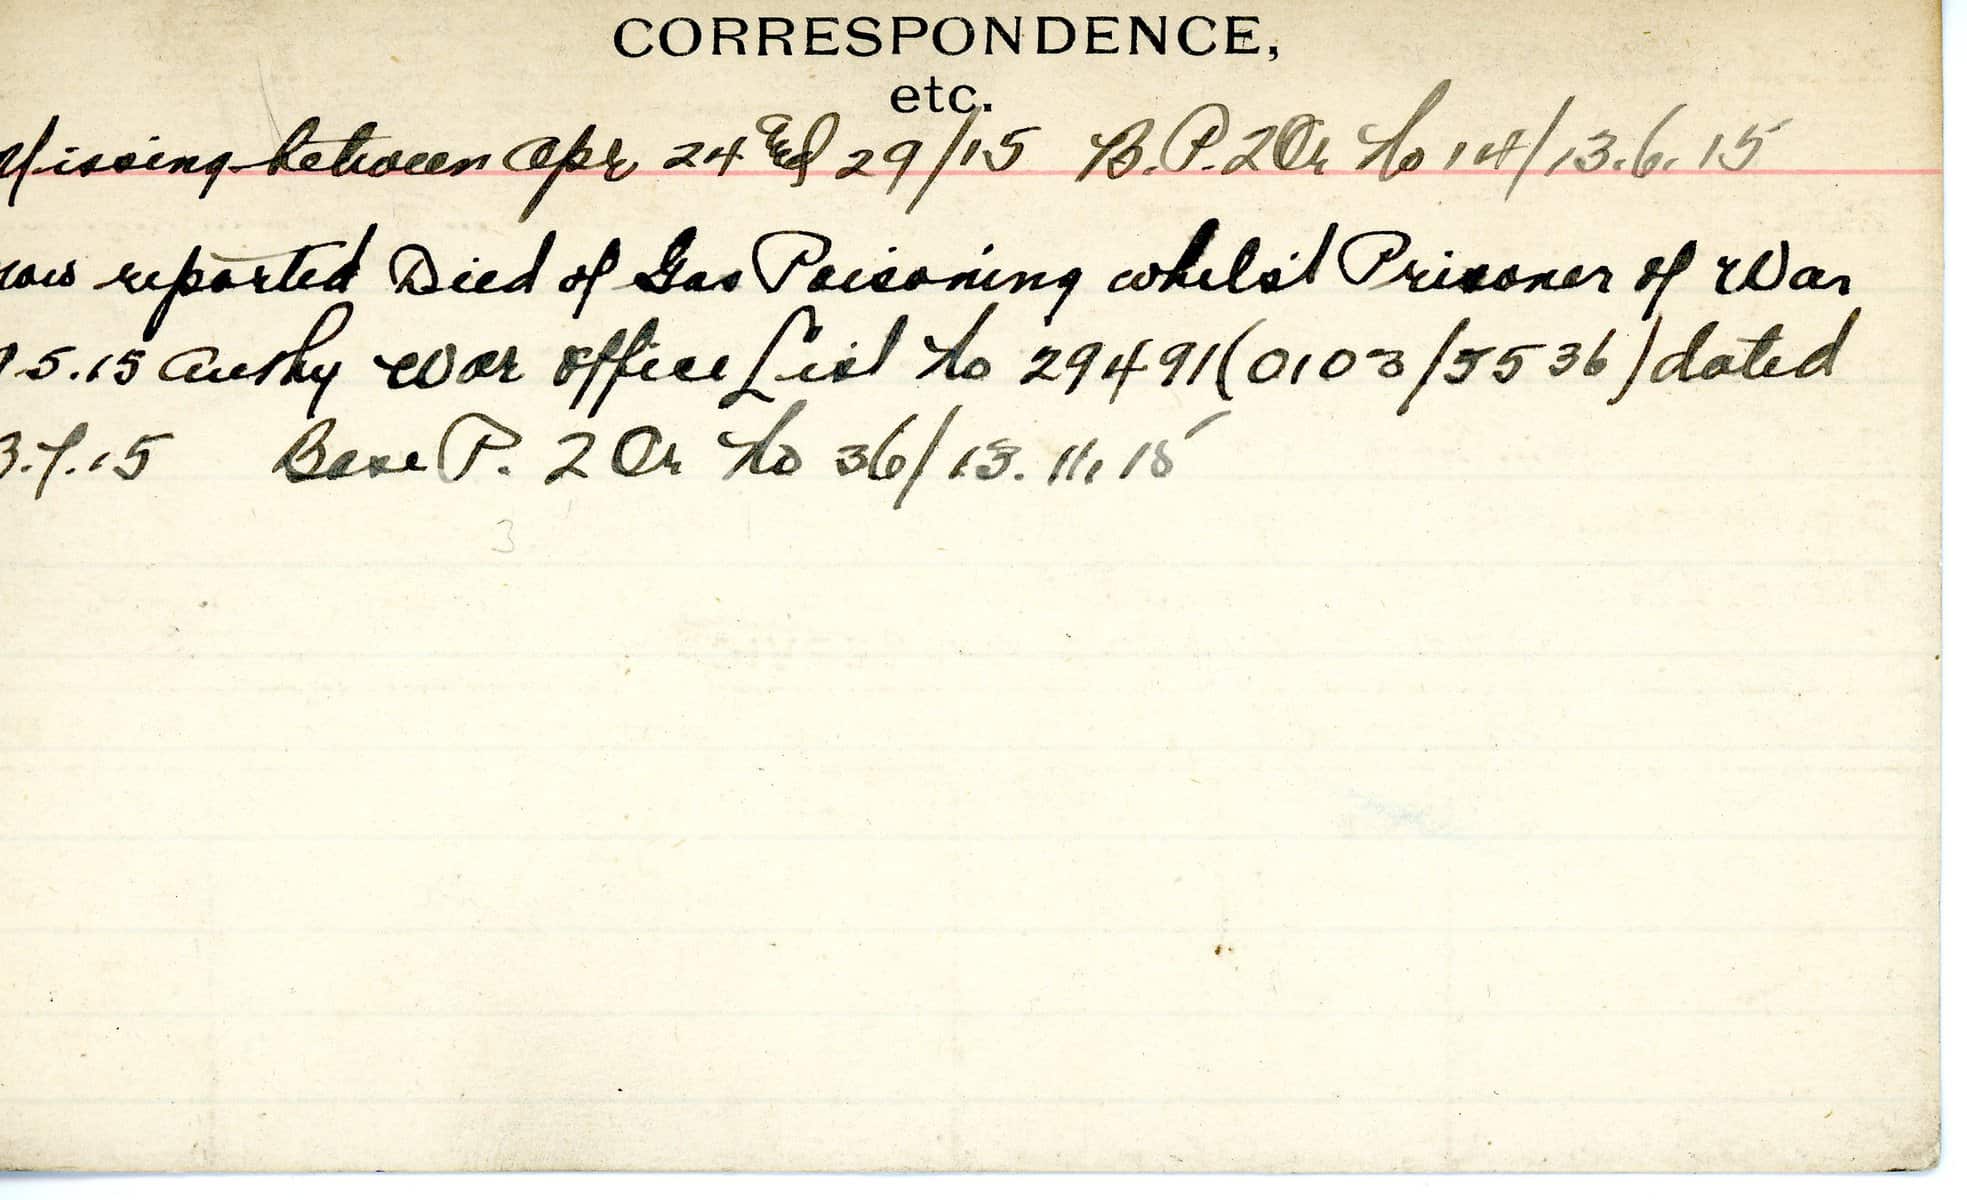 CORRESPONDENCE,
etc.
Missing between Apr 24 and 29/15 B.P.2 Or No 14/13.6.15
now reported Died of Gas Poisoning whilst Prisoner of War
5.15 Authy War Office List No 29491(0103/5536) dated
3.7.15 Base P. 2 Or No 36/13.11.15
3